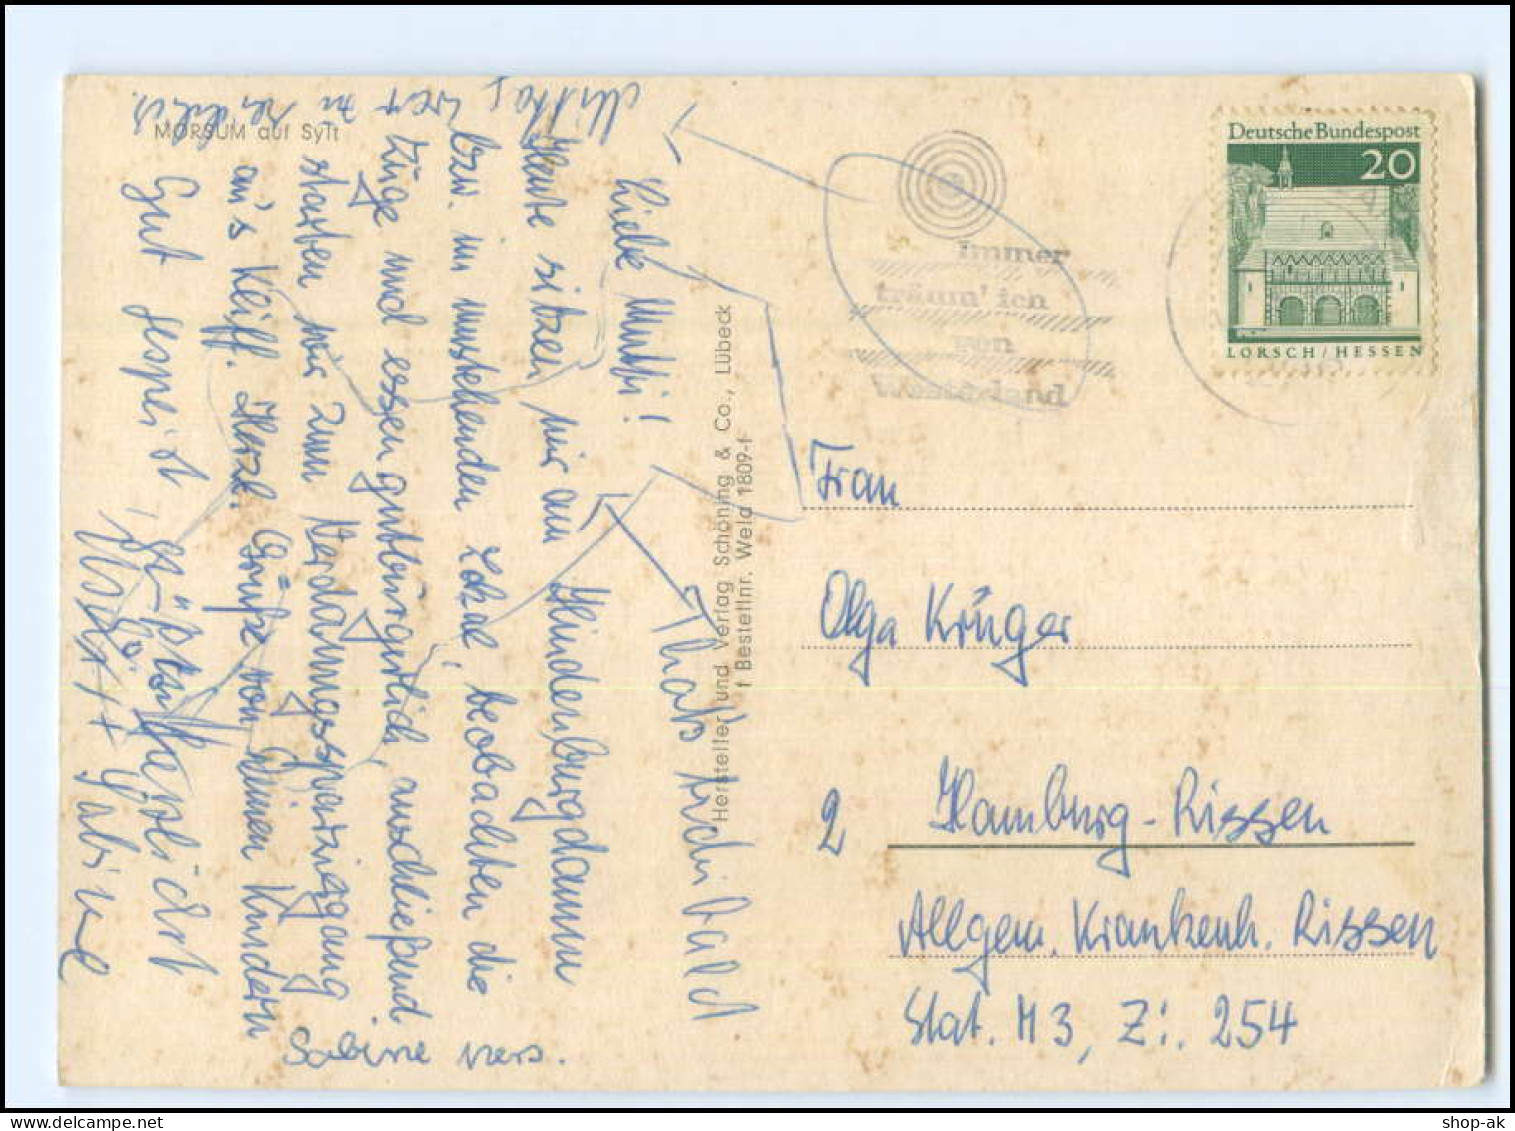 MORSUM auf Sylt
Liebe Mutti!
Heute sitzen wir am Hindenburgdamm
bzw. im nebenstehenden Lokal, beobachten die
Züge und essen gutbürgerlich, anschließend
starten wir zum Verdauungsspaziergang
an's Kliff. Herzl. Grüße von Deinen Kindern
Gut gespeist,
Sabine
Hersteller und Verlag Schöning & Co., Lübeck
† Bestellnr. Weld 1809-f
immer
träum' ich
von
Westerland
Deutsche Bundespost
20
LORSCH/HESSEN
Frau
Olga Krüger
2 Hamburg-Rissen
Allgem. Krankenh. Rissen
Stat. M3, Zi. 254
shop-ak